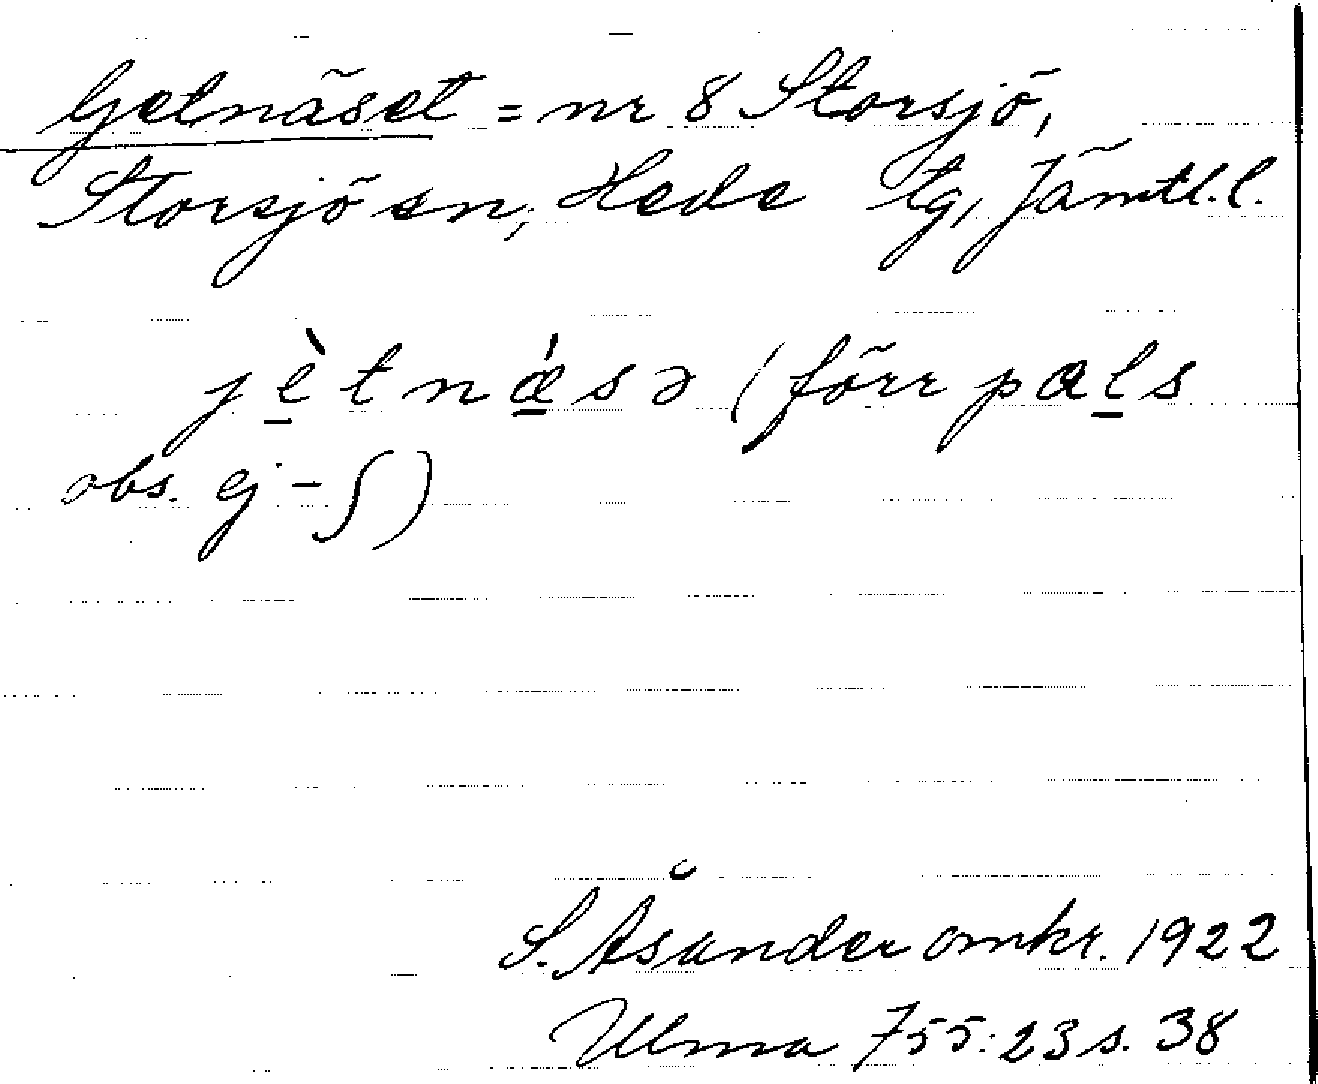 Getnäset = nr 8 Storsjö,
Storsjö sn, Hede tg, Jämtl. l.
jètnǽsə (förr pæls
obs. ej -ʃ)
S. Åsander omkr. 1922
Ulma 755:23 s. 38